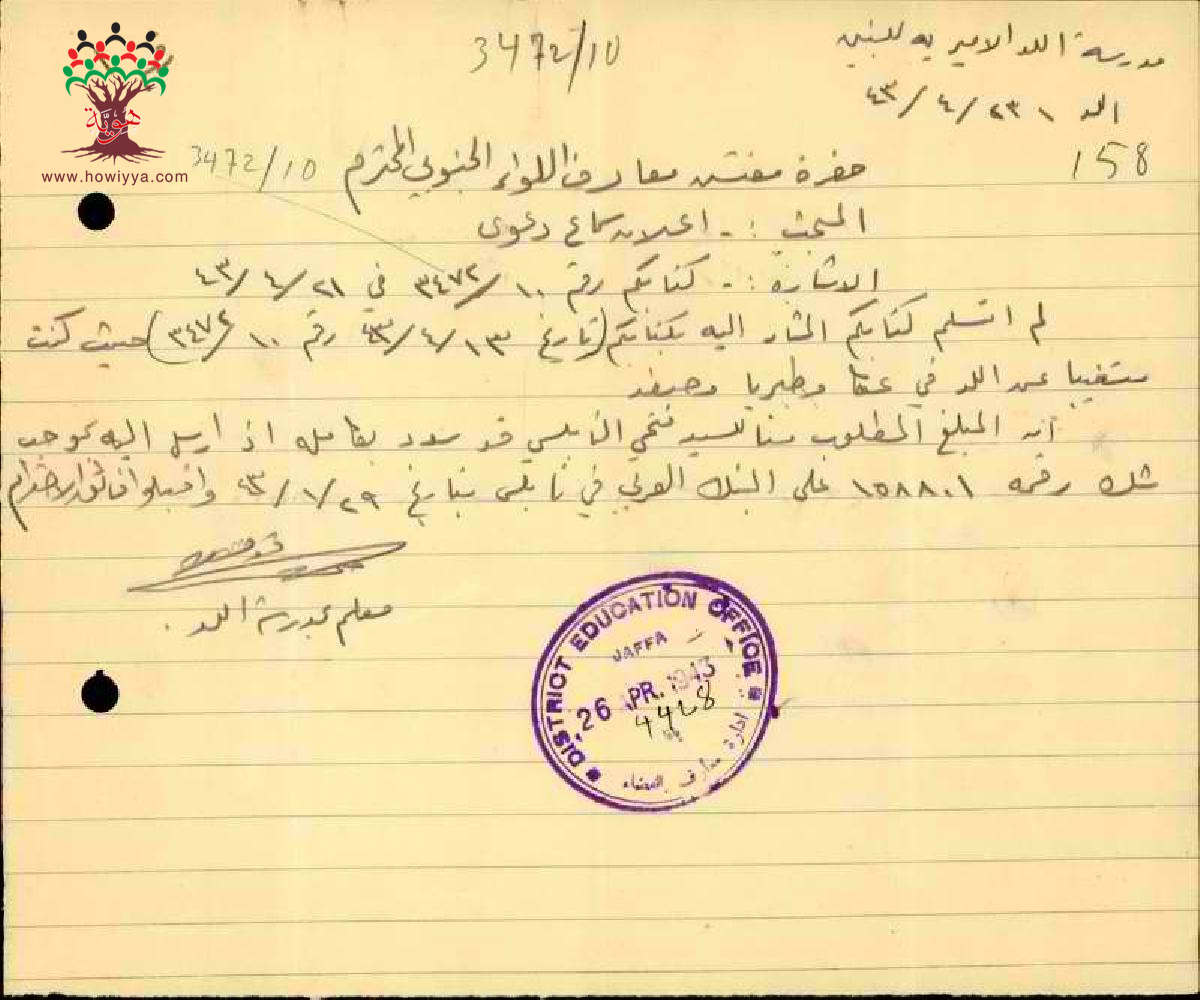 مدرسة اللد الاميريه للبنين
3472/10
اللد ٤٣/٤/٢٣
158
حضرة مفتش معارف اللواء الجنوبي المحترم 3472/10
هويّة
www.howiyya.com
المبحث :- اعلان سماع دعوى
الاشارة :- كتابكم رقم ٣٤٧٢/١٠ في ٤٣/٤/٢١
لم اتسلم كتابكم المشار اليه بكتابكم (تاريخ ٤٣/٤/١٣ رقم ٣٤٧٢/١٠) حيث كنت
متغيبا عن اللد في عكا وطبريا وصفد
ان المبلغ المطلوب منا للسيد فتحي النابلسي قد سدد بكامله اذ ارسل اليه بموجب
شك رقمه ١٥٨٨٠١ على البنك العربي في نابلس بتاريخ ٤٣/١/٢٩ واقبلوا فائق الاحترام
معلم بمدرسة اللد.
DISTRICT EDUCATION OFFICE
JAFFA
26 APR. 1943
4428
ادارة معارف